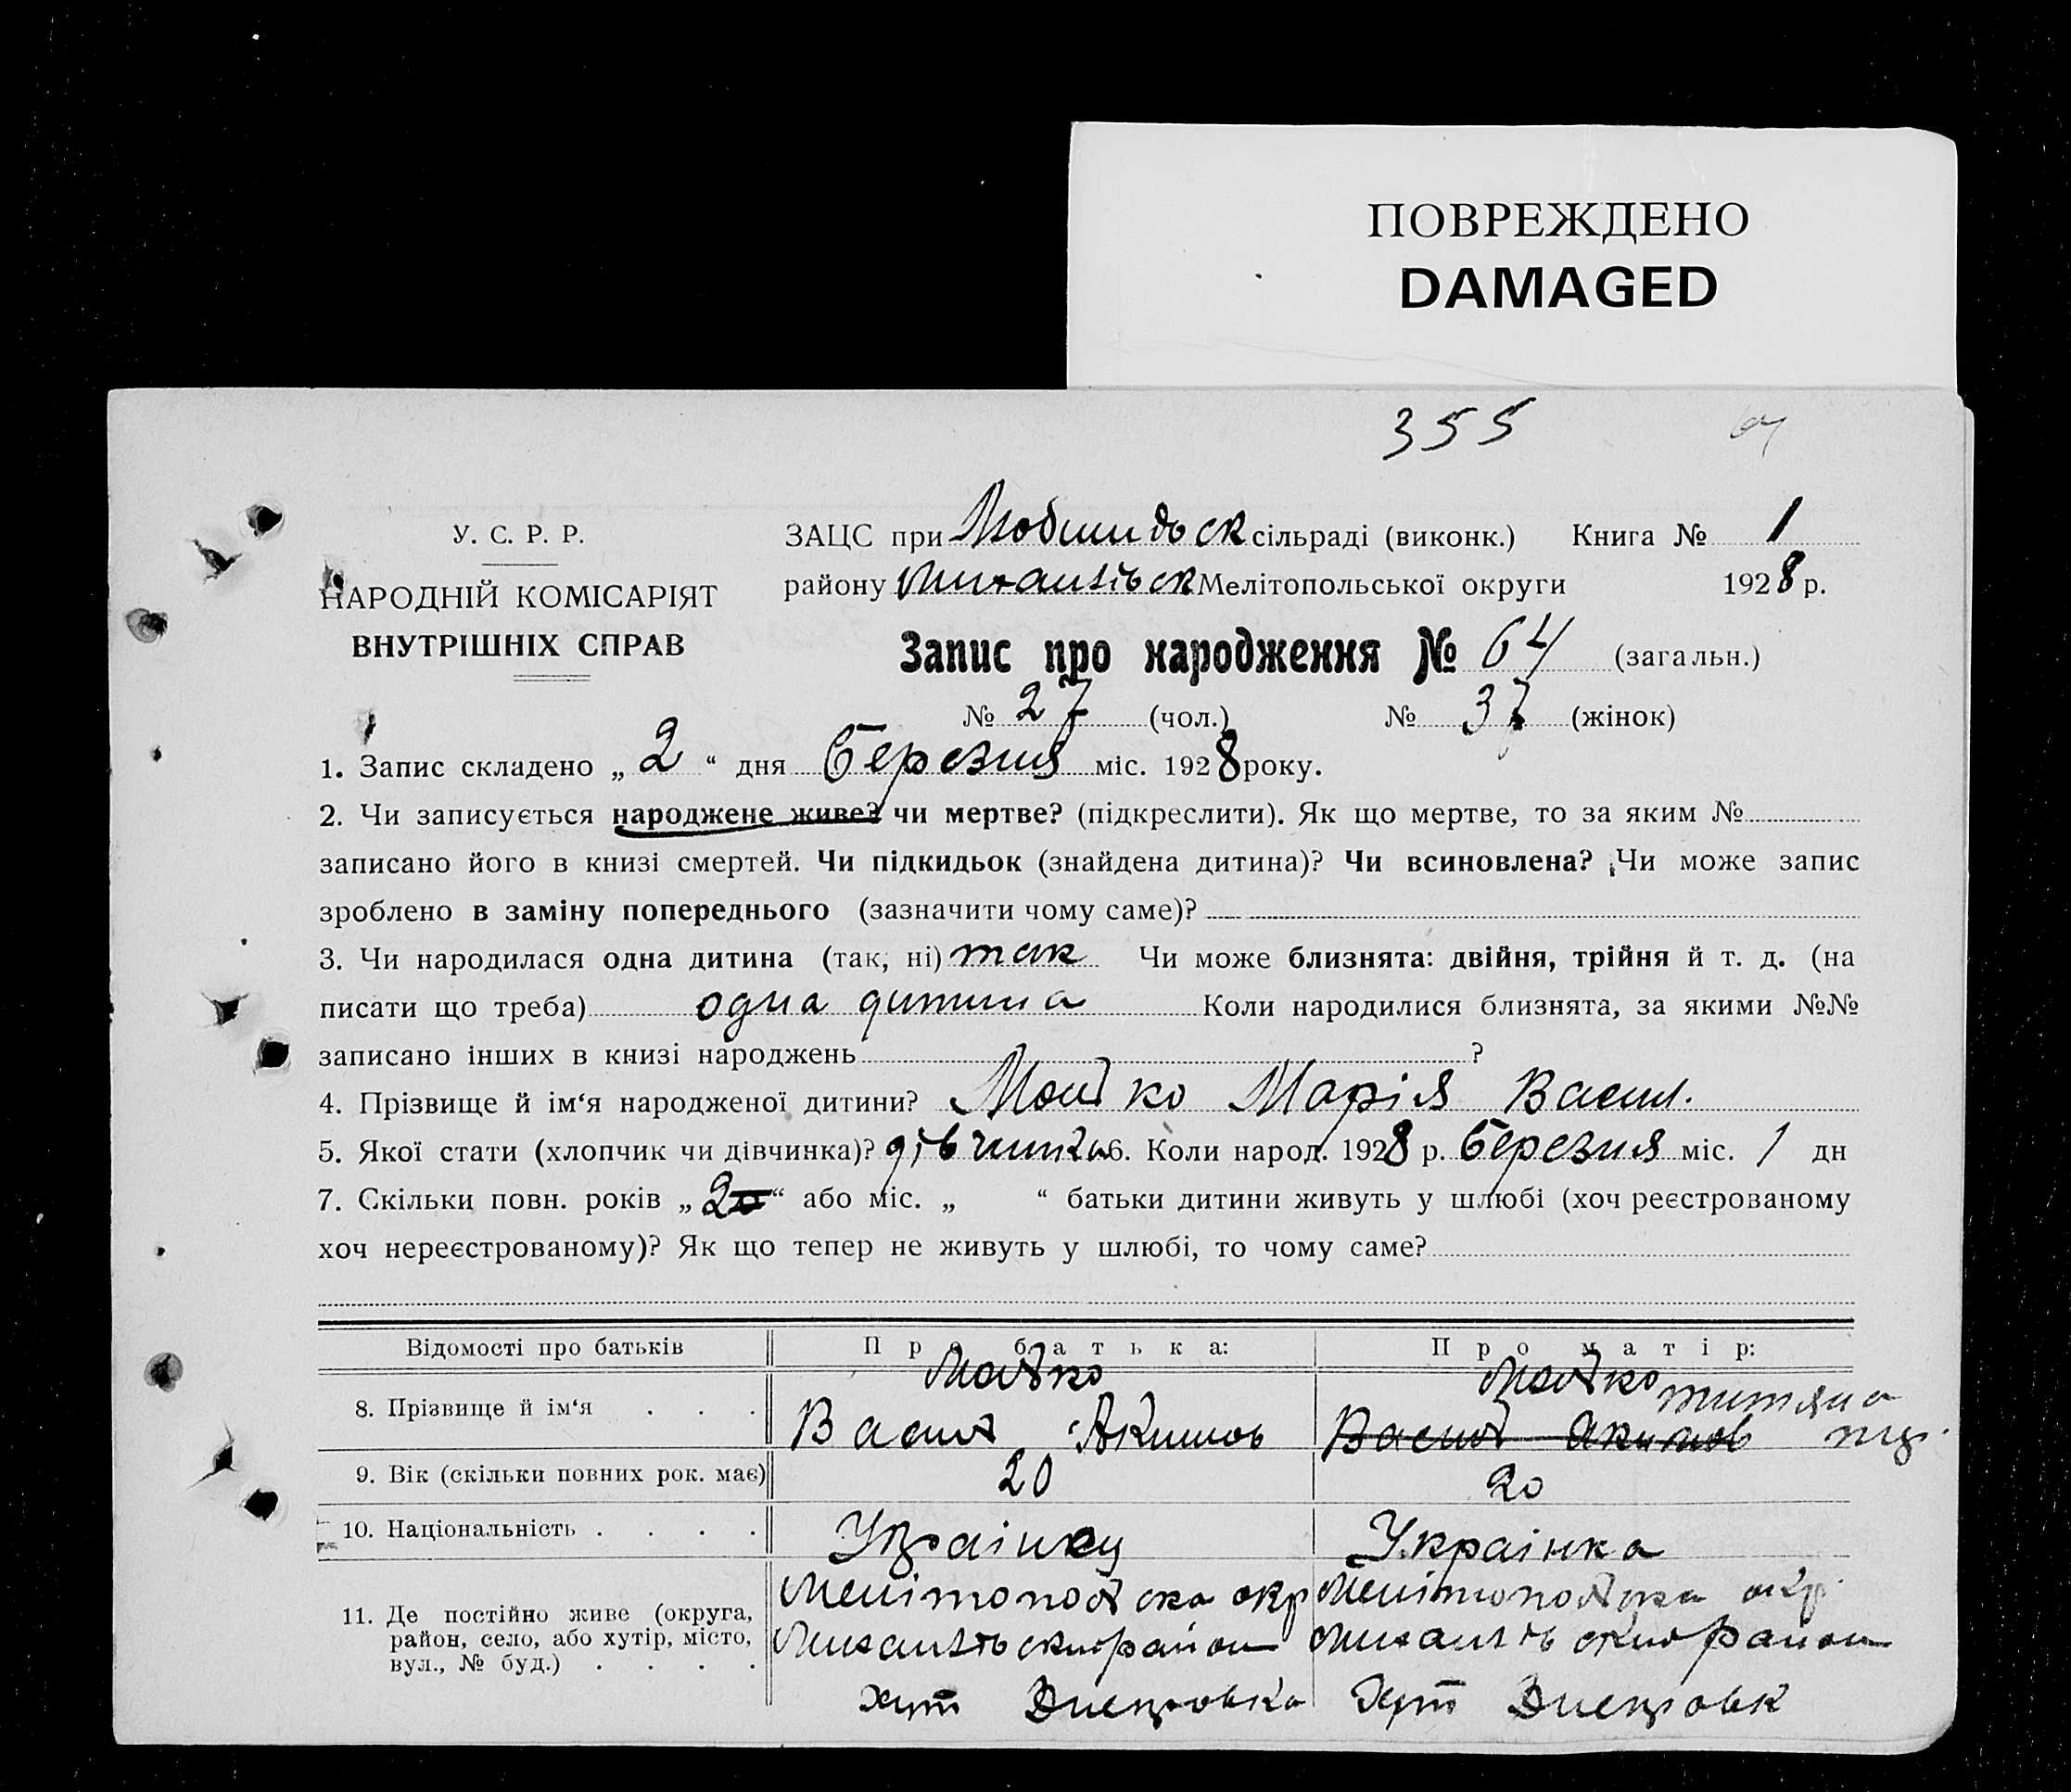 ПОВРЕЖДЕНО
DAMAGED
355
64
У. С. Р. Р.
НАРОДНІЙ КОМІСАРІЯТ
ВНУТРІШНІХ СПРАВ
ЗАЦС при сільраді (виконк.) Книга № 1
району Мелітопольської округи 1928 р.
Запис про народження № 64 (загальн.)
№ 27 (чол.) № 37 (жінок)
1. Запис складено „ 2 “ дня березня міс. 1928 року.
2. Чи записується народжене живе? чи мертве? (підкреслити). Як що мертве, то за яким №
записано його в книзі смертей. Чи підкидьок (знайдена дитина)? Чи всиновлена? Чи може запис
зроблено в заміну попереднього (зазначити чому саме)?
3. Чи народилася одна дитина (так, ні) так Чи може близнята: двійня, трійня й т. д. (на
писати що треба) одна дитина Коли народилися близнята, за якими №№
записано інших в книзі народжень ?
4. Прізвище й ім‘я народженої дитини? Марія Васил.
5. Якої стати (хлопчик чи дівчинка)? дівчинка 6. Коли народ. 1928 р. березня міс. 1 дн
7. Скільки повн. років „ 2 “ або міс. „ “ батьки дитини живуть у шлюбі (хоч реєстрованому
хоч нереєстрованому)? Як що тепер не живуть у шлюбі, то чому саме?
Відомості про батьків Про батька: Про матір:
8. Прізвище й ім‘я . . . Васил Акимов Васил Акимов
9. Вік (скільки повних рок. має) 20 20
10. Національність . . . . Украінец Украінка
11. Де постійно живе (округа,
район, село, або хутір, місто,
вул., № буд.) . . . .
окр окр.
район район
хут Днепровка Хут Днепровк